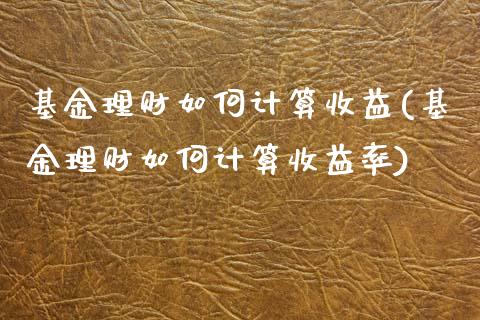 基金理财如何计算收益(基
金理财如何计算收益率)